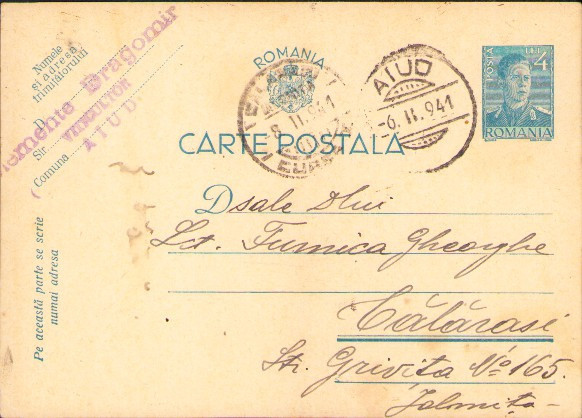 Numele
și adresa
trimițătorului
D.
Clemente Dragomir
Str.
AIUD
Comuna
ROMANIA
AIUD
-6.II.941
POSTA
LEI 4
ROMANIA
CARTE POSTALA
8.II.941
Dsale Dlui
Lct. Furnica Gheorghe
Călărași
Str. Grivita No 165.
Ialomita
Pe această parte se scrie
numai adresa